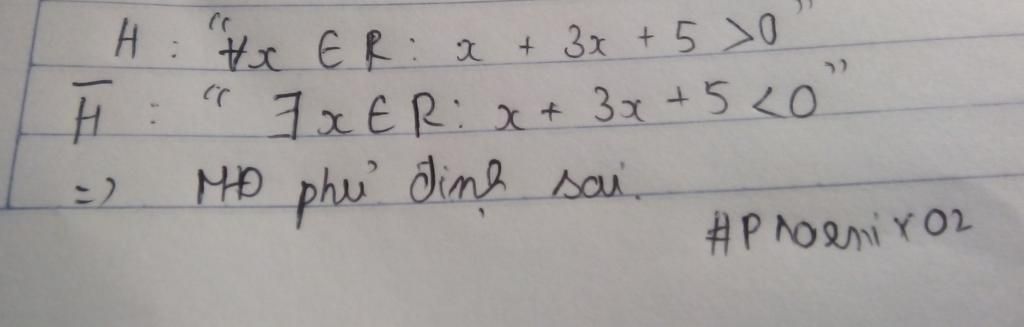 H : "∀x ∈ R : x + 3x + 5 > 0"
H̅ : "∃x ∈ R : x + 3x + 5 < 0"
=> MĐ phủ định sai.
#Phoenix02